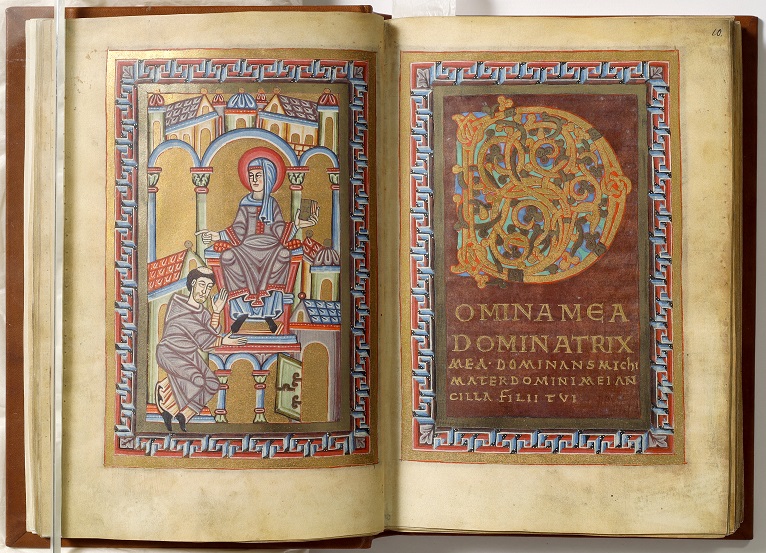 10.
D
OMINA MEA
DOMINATRIX
MEA · DOMINANS MICHI
MATER DOMINI MEI AN
CILLA FILII TVI